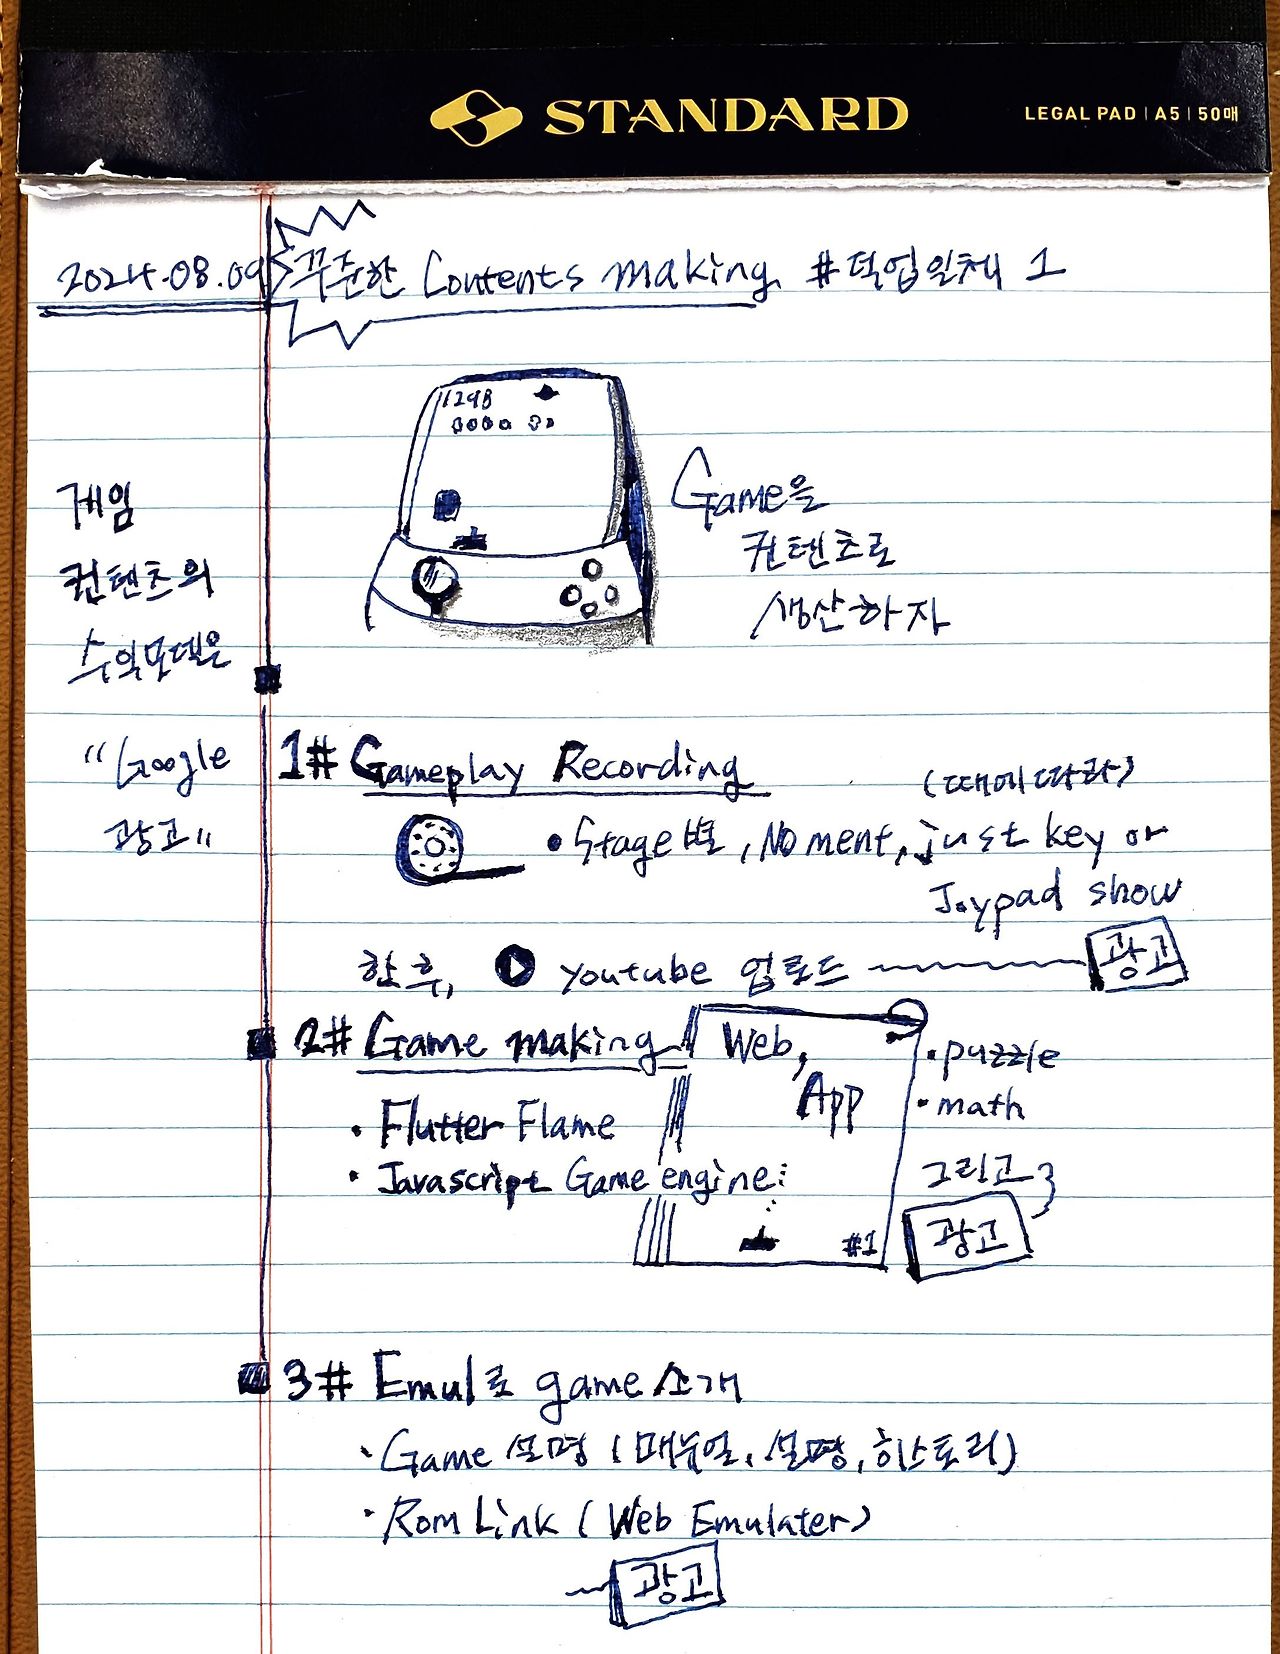 STANDARD
LEGAL PAD | A5 | 50매
2024.08.09 꾸준한 Contents making #덕업일체 1
1298
게임
컨텐츠의
수익모델은
"Google
광고"
Game을
컨텐츠로
생산하자
1# Gameplay Recording
(때에따라)
• Stage별, No ment, just key or
Joypad show
한 후, youtube 업로드 광고
2# Game making
Web,
App
• Flutter Flame
• Javascript Game engine
#1
• puzzle
• math
그리고
광고
3# Emul로 game 소개
• Game 설명 (매뉴얼, 설명, 히스토리)
• Rom Link (Web Emulater)
광고